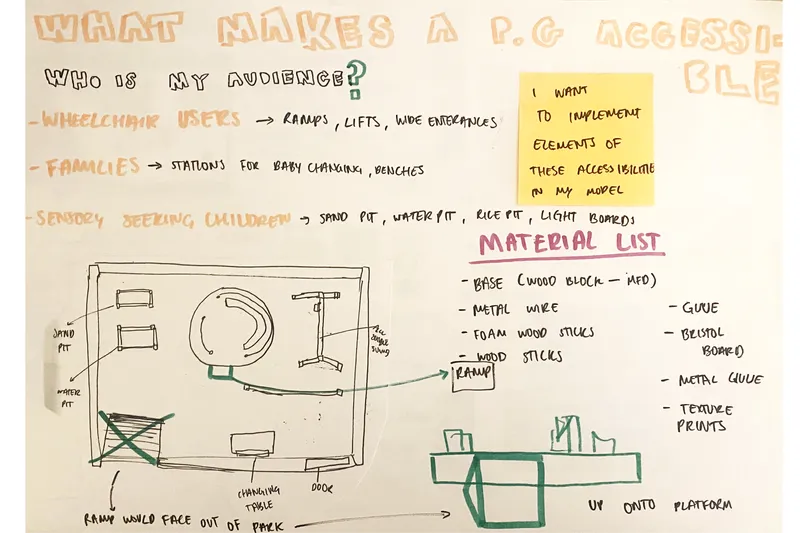 WHAT MAKES A P.G ACCESSI-
BLE
WHO IS MY AUDIENCE?
- WHEELCHAIR USERS → RAMPS, LIFTS, WIDE ENTERANCES
- FAMILIES → STATIONS FOR BABY CHANGING, BENCHES
- SENSORY SEEKING CHILDREN → SAND PIT, WATER PIT, RICE PIT, LIGHT BOARDS
I WANT
TO IMPLEMENT
ELEMENTS OF
THESE ACCESSIBILITIE
IN MY MODEL
MATERIAL LIST
- BASE (WOOD BLOCK - MFD)
- METAL WIRE
- FOAM WOOD STICKS
- WOOD STICKS
- GLUE
- BRISTOL
BOARD
- METAL GLUE
- TEXTURE
PRINTS
SAND
PIT
WATER
PIT
SWING
RAMP
CHANGING
TABLE
DOOR
RAMP WOULD FACE OUT OF PARK
UP ONTO PLATFORM